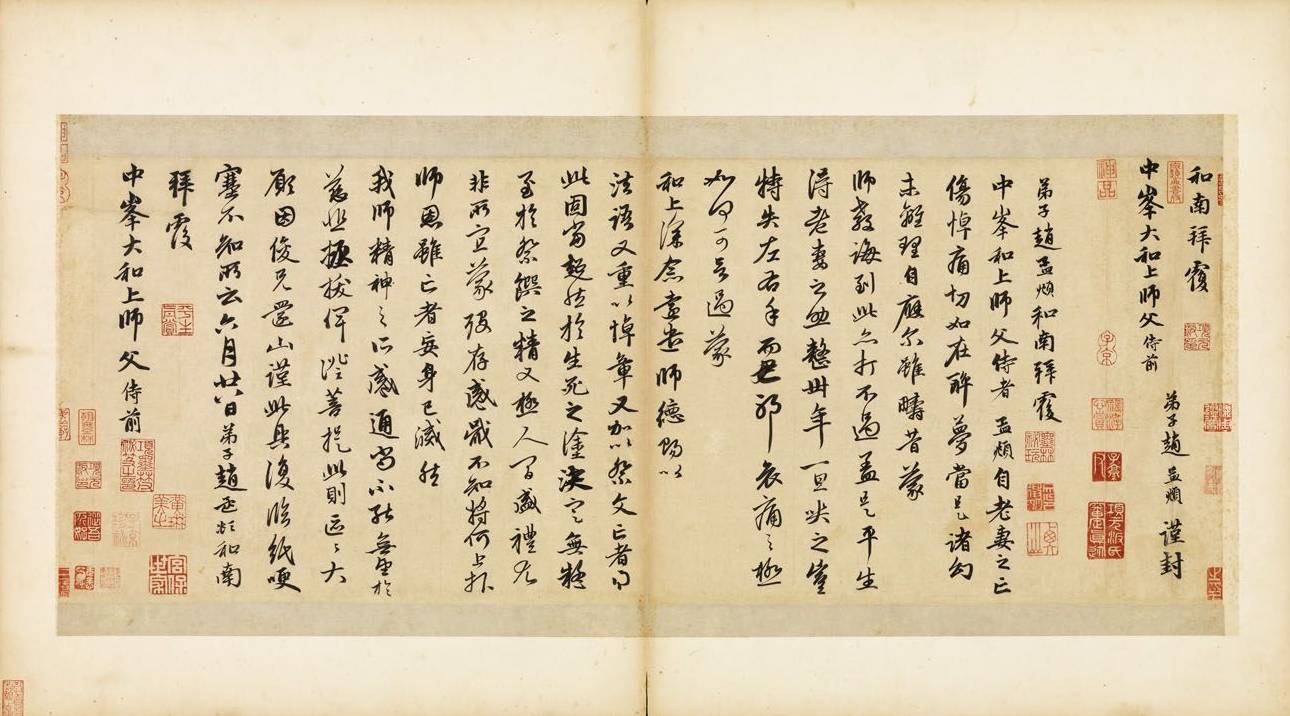 和南拜覆
中峯大和上師父侍前
弟子趙孟頫謹封
弟子趙孟頫和南拜覆
中峯和上師父侍者孟頫自老妻之亡
傷悼痛切如在醉夢當是諸幻
未離理自應尔雖疇昔蒙
師教誨到此亦打不過盖是平生
得老妻之助整卅年一旦哭之豈
特失左右手而已耶哀痛之極
如何可言過蒙
和上深念遠遣師德賜以
法語又重以悼章又加以祭文亡者得
此固當超然於生死之塗決定無疑
至於祭饌之精又極人間盛禮尤
非所宜蒙歿存感戴不知將何上報
師恩雖亡者無身已滅然
我師精神之所感通尚不能無望於
慈悲拯拔俾證菩提此則區區大
願因俊兄還山謹此具復臨紙哽
塞不知所云六月廿八日弟子趙孟頫和南
拜覆
中峯大和上師父侍前